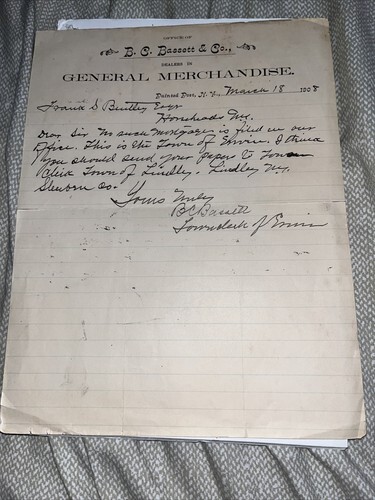 OFFICE OF
B. C. Bassett & Co.,
DEALERS IN
GENERAL MERCHANDISE.
Painted Post, N. Y., March 18 1908
Frank S Bentley Esqr
Horseheads Ny.
Dear Sir No such mortgage is filed in our
Office. This is the Town of Erwin. I think
you should send your paper to Town
Clerk Town of Lindley. Lindley Ny.
Steuben Co.
Yours Truly
B C Bassett
Town clerk of Erwin